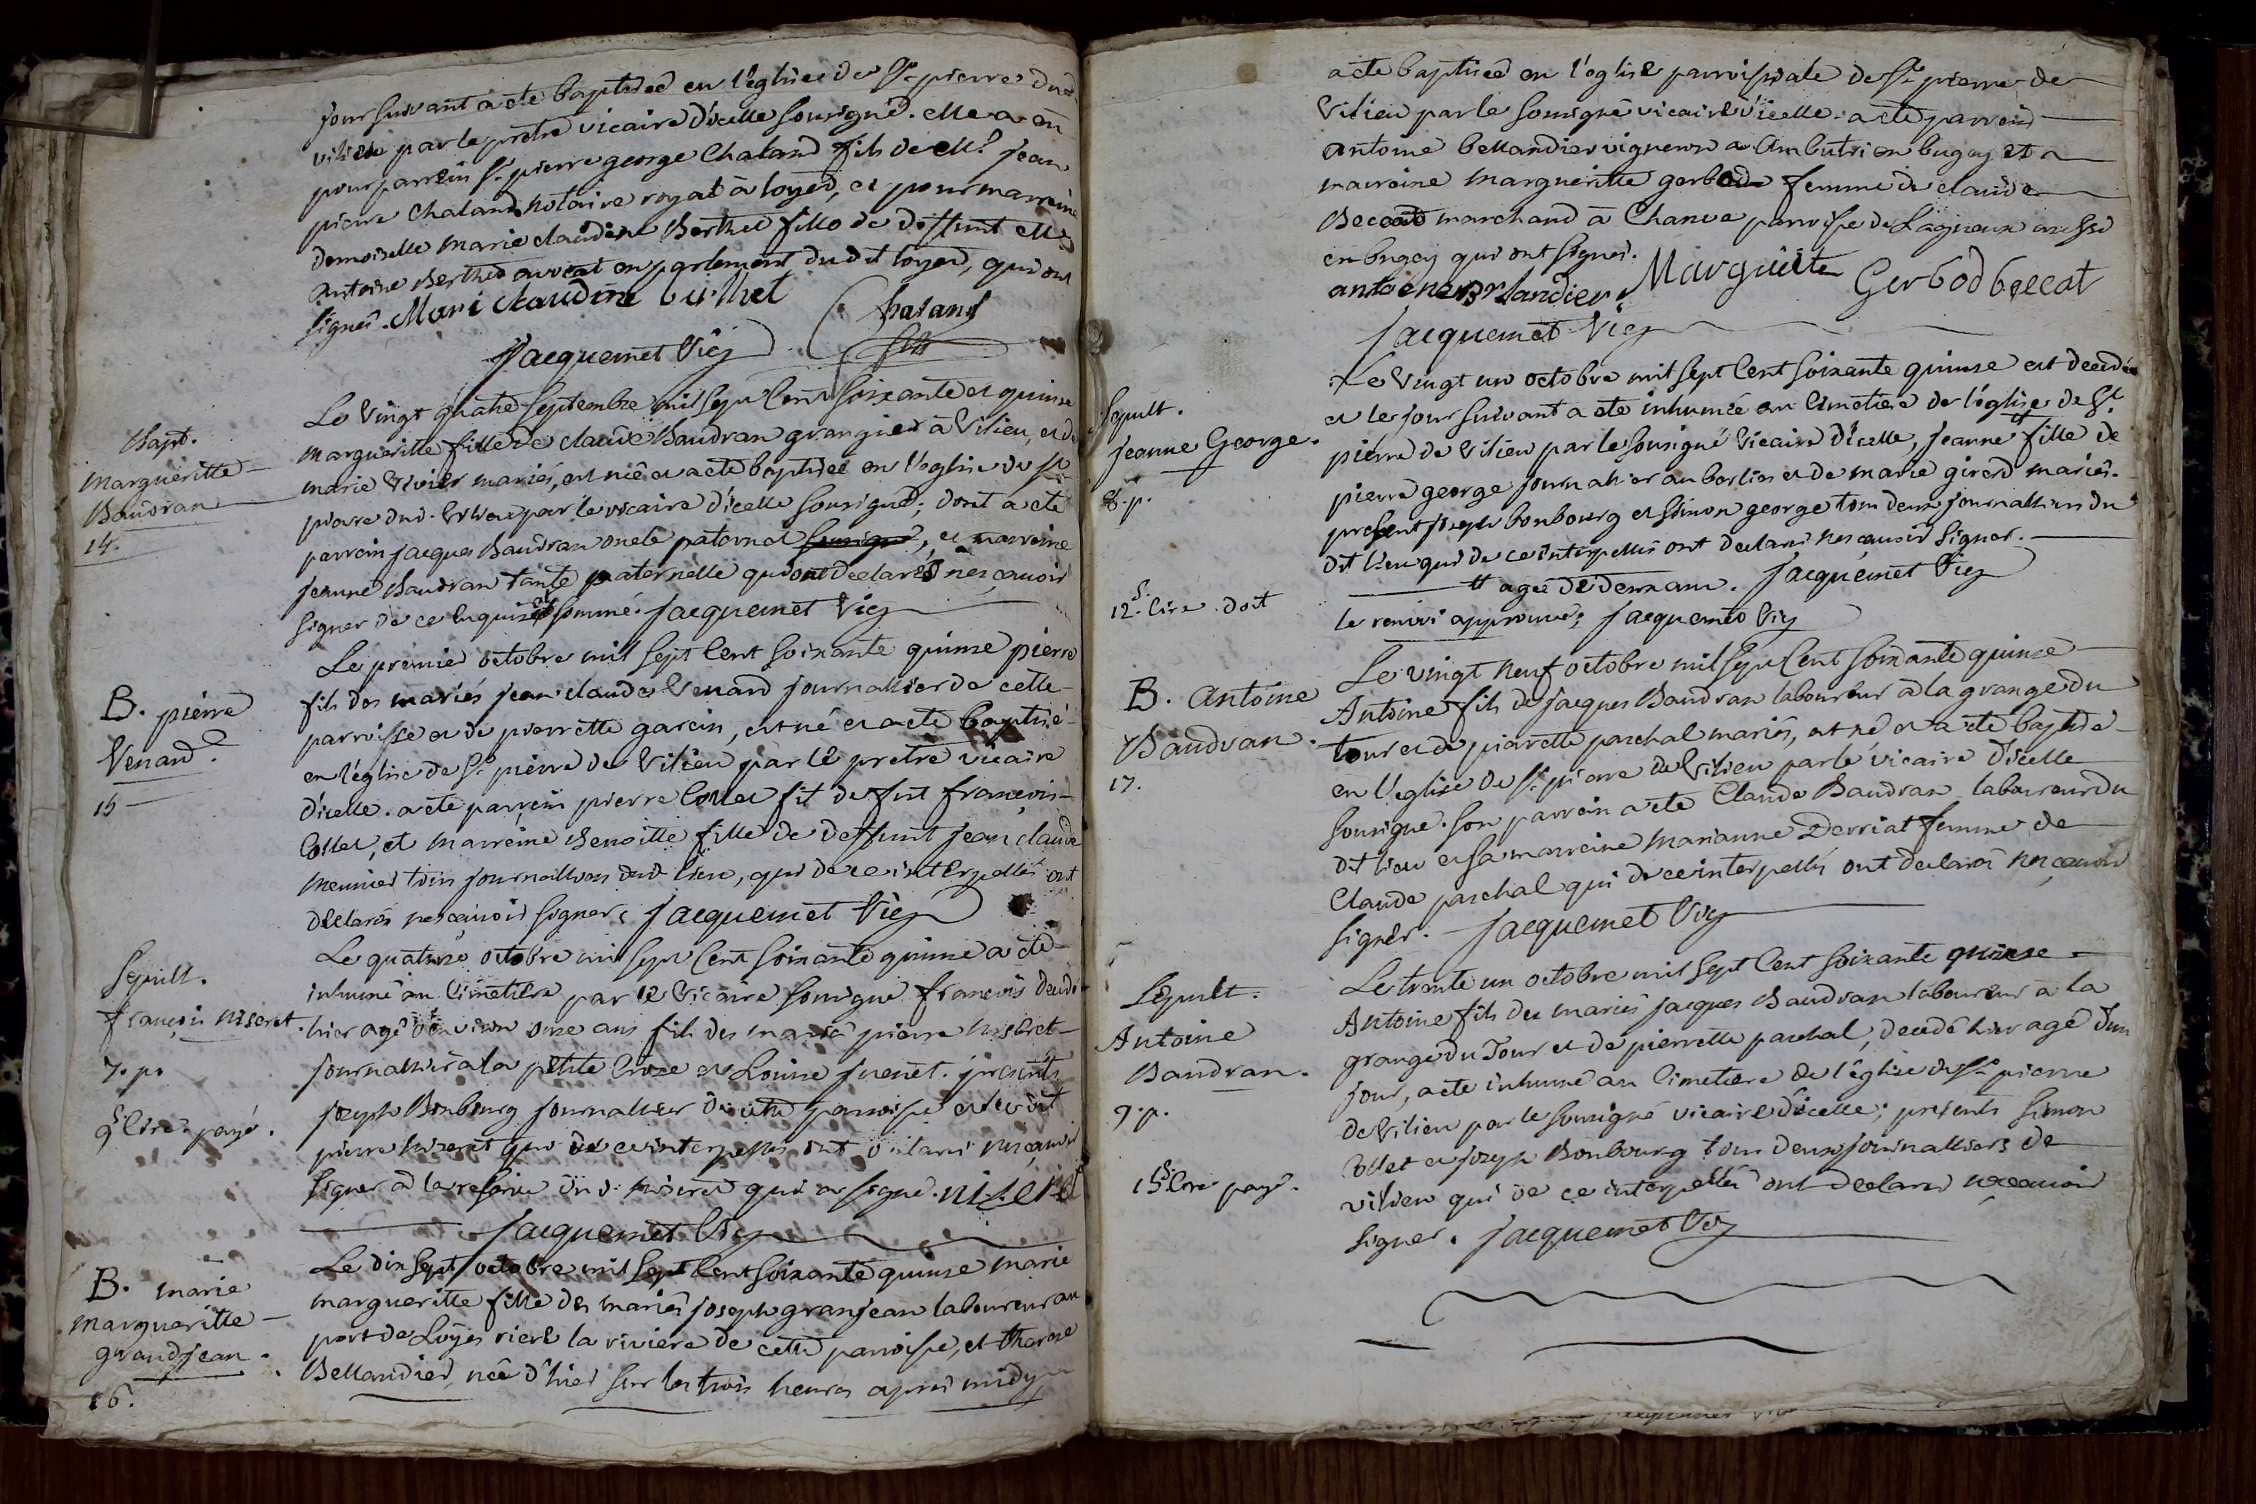 jour suivant a eté baptisée en l'eglise de St pierre dud.
vilieu par le prêtre vicaire d'icelle sousigné. elle a eu
pour parrein Sr pierre george Chaland fils de Me jean
pierre Chaland notaire royal à loyes, et pour marreine
demoiselle marie claudine Berthet fille de deffunt Me
antoine Berthet avocat en parlement du dit loyes, qui ont
signés. Mari claudine berthet Chaland
Jacquemet Vic fils
Bapt.
margueritte
Baudran
14.
Le vingt quatre septembre mil sept cent soixante et quinse
margueritte fille de claude Baudran granger à Vilieu, et de
marie Vivier mariés, est née et a eté baptisée en l'eglise de St
pierre dud. Vilieu par le vicaire d'icelle sousigné; dont a eté
parrein jacques Baudran oncle paternel sousigné, et marreine
jeanne Baudran tante paternelle qui ont declarés ne sçavoir
signer de ce enquis et sommé. Jacquemet Vic
B. pierre
Venard.
15
Le premier octobre mil sept cent soixante quinse pierre
fils des mariés jean claude Venard journallier de cette
parroisse et de pierrette garcin, est né et a eté baptisé
en l'eglise de St pierre de Vilieu par le pretre vicaire
d'icelle. a eté parrein pierre Collet fils de fut françois
Collet, et marreine Benoitte fille de deffunt jean claude
meunier tous journalliers dud. lieu, qui de ce interpellés ont
declarés ne sçavoir signer. Jacquemet Vic
Sepult.
françois niseret.
7. p.
9s. Cire payé.
Le quatorze octobre mil sept cent soixante quinse a eté
inhumé au cimetiere par le vicaire sousigné françois decedé
hier agé d'environ onse ans fils des mariés pierre niseret
journallier à la petite Croze et Louise juenet. présents
joseph Bonbourg journallier de cette parroisse et le dit
pierre niseret qui de ce interpellés ont declarés ne sçavoir
signer a la reserve du d. niseret qui a signé. niseret
Jacquemet Vic
B. marie
margueritte
grandjean.
16.
Le dix sept octobre mil sept cent soixante quinse marie
margueritte fille des mariés joseph granjean laboureur au
port de Loyes riere la riviere de cette parroisse, et therese
Bellandier, née d'hier sur les trois heures apres midy
a eté baptisée en l'eglise parroissiale de St pierre de
Vilieu par le sousigné vicaire d'icelle. a eté parrein
antoine bellandier vigneron a Ambutrix en bugey et a
marreine margueritte gerbod femme de claude
Beccat marchand à Chanve parroisse de Lagnieux aussi
en bugey qui ont signés.
antoine bellandier Marguerite Gerbod beccat
Jacquemet Vic
Sepult.
jeanne George.
8. p.
12s. Cire doit
Le vingt un octobre mil sept cent soixante quinse est decedée
et le jour suivant a eté inhumée au cimetiere de l'église de St
pierre de vilieu par le sousigné vicaire d'icelle, jeanne # fille de
pierre george journalier au berlion et de marie girerd mariés.
present joseph bonbourg et simon george tous deux journalliers du
dit lieu qui de ce interpellés ont declarés ne sçavoir signer.
# agée de deux ans. Jacquemet Vic
le renvoi approuvé; Jacquemet Vic
B. Antoine
Baudran.
17.
Le vingt neuf octobre mil sept cent soixante quinse
Antoine fils de jacques Baudran laboureur à la grange du
tour et de pierrette paschal mariés, est né et a eté baptisé
en l'eglise de St pierre de Vilieu par le vicaire d'icelle
sousigné. son parrein a eté Claude Baudran laboureur du
dit lieu et sa marreine marianne Derriat femme de
Claude paschal qui de ce interpellés ont declarés ne sçavoir
signer. Jacquemet Vic
Sepult.
Antoine
Baudran.
9. p.
15s. Cire payé.
Le trente un octobre mil sept cent soixante quinse
Antoine fils des mariés jacques Baudran laboureur à la
grange du Tour et de pierrette paschal, decedé hier agé d'un
jour, a eté inhumé au cimetiere de l'église de St pierre
de vilieu par le sousigné vicaire d'icelle; présents simon
Collet et joseph Bonbourg tous deux journalliers de
vilieu qui de ce interpellés ont declarés ne sçavoir
signer. Jacquemet Vic